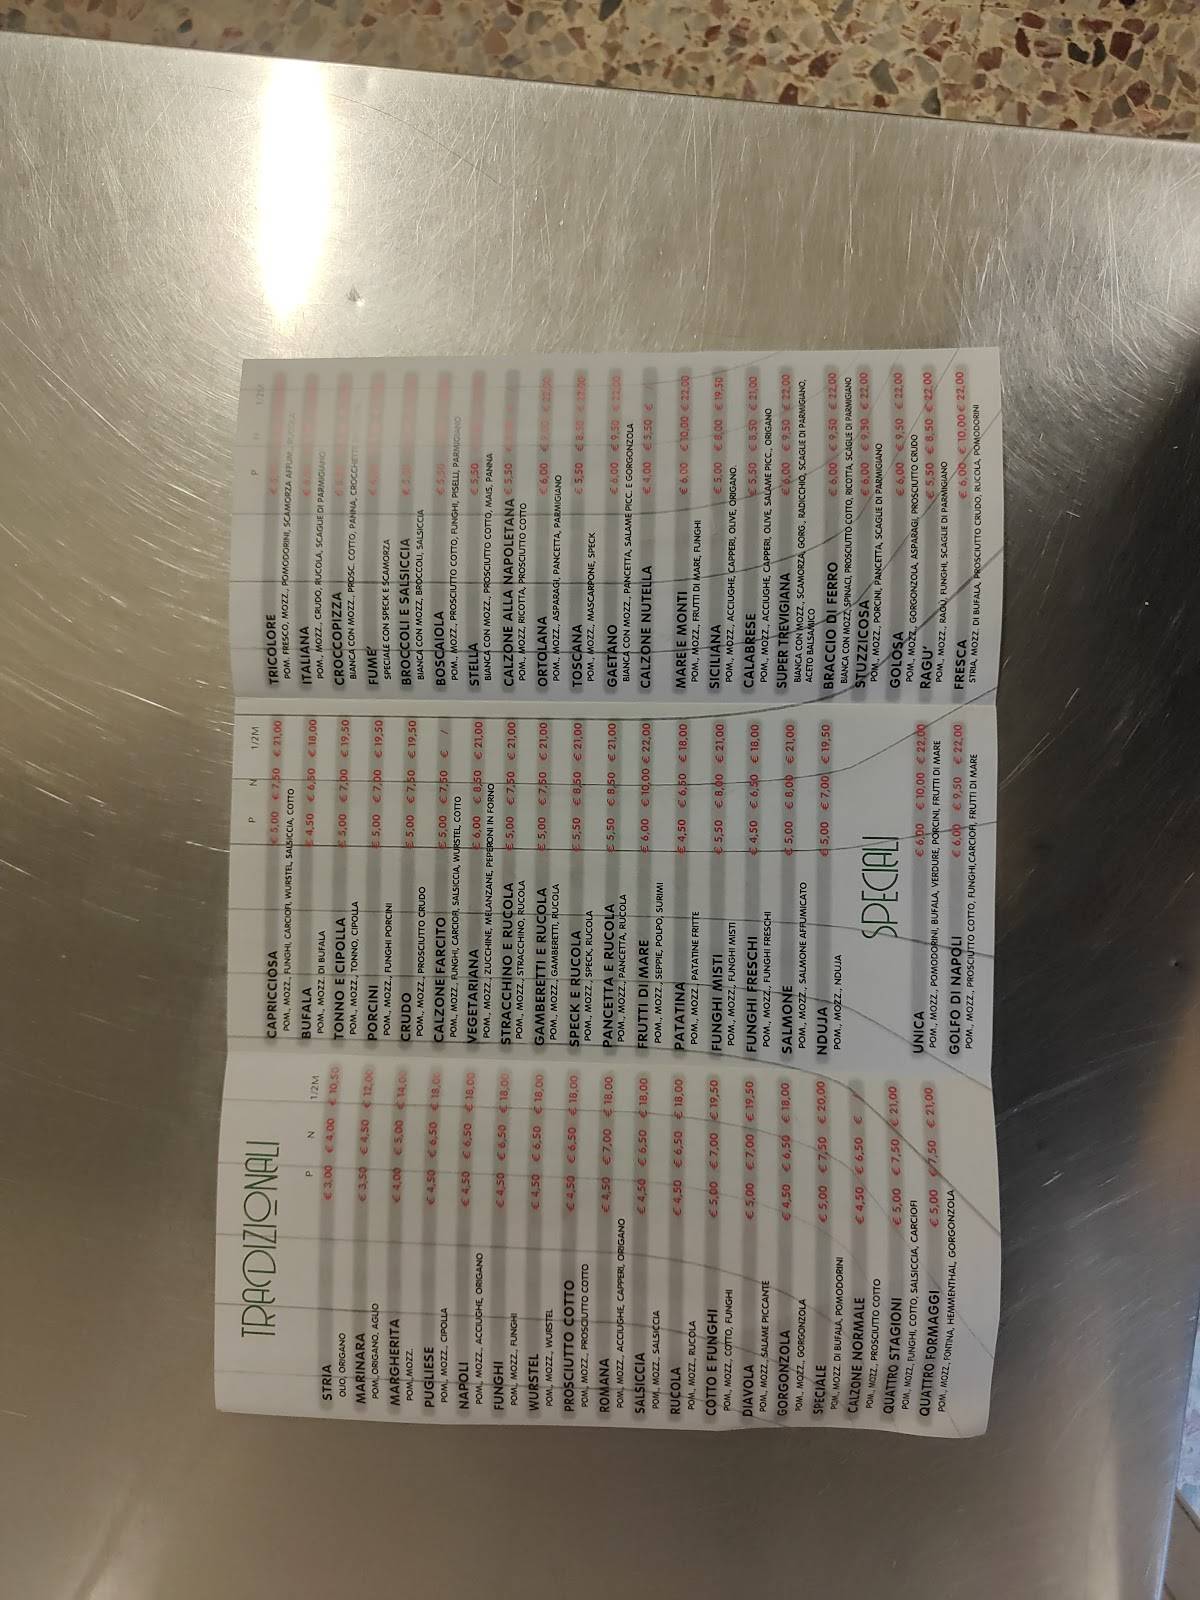 TRADIZIONALI
P N 1/2M
STRIA € 3,00 € 4,00 € 10,50
OLIO, ORIGANO
MARINARA € 3,50 € 4,50 € 12,00
POM, ORIGANO, AGLIO
MARGHERITA € 4,00 € 5,00 € 14,00
POM, MOZZ.
PUGLIESE € 4,50 € 6,50 € 18,00
POM., MOZZ., CIPOLLA
NAPOLI € 4,50 € 6,50 € 18,00
POM., MOZZ., ACCIUGHE, ORIGANO
FUNGHI € 4,50 € 6,50 € 18,00
POM., MOZZ., FUNGHI
WURSTEL € 4,50 € 6,50 € 18,00
POM., MOZZ., WURSTEL
PROSCIUTTO COTTO € 4,50 € 6,50 € 18,00
POM., MOZZ., PROSCIUTTO COTTO
ROMANA € 4,50 € 7,00 € 18,00
POM., MOZZ., ACCIUGHE, CAPPERI, ORIGANO
SALSICCIA € 4,50 € 6,50 € 18,00
POM., MOZZ., SALSICCIA
RUCOLA € 4,50 € 6,50 € 18,00
POM., MOZZ., RUCOLA
COTTO E FUNGHI € 5,00 € 7,00 € 19,50
POM., MOZZ., COTTO, FUNGHI
DIAVOLA € 5,00 € 7,00 € 19,50
POM., MOZZ., SALAME PICCANTE
GORGONZOLA € 4,50 € 6,50 € 18,00
POM., MOZZ., GORGONZOLA
SPECIALE € 5,00 € 7,50 € 20,00
POM., MOZZ. DI BUFALA, POMODORINI
CALZONE NORMALE € 4,50 € 6,50 €
POM., MOZZ., PROSCIUTTO COTTO
QUATTRO STAGIONI € 5,00 € 7,50 € 21,00
POM., MOZZ., FUNGHI, COTTO, SALSICCIA, CARCIOFI
QUATTRO FORMAGGI € 5,00 € 7,50 € 21,00
POM., MOZZ., FONTINA, HEMMENTHAL, GORGONZOLA
P N 1/2M
CAPRICCIOSA € 5,00 € 7,50 € 21,00
POM., MOZZ., FUNGHI, CARCIOFI, WURSTEL, SALSICCIA, COTTO
BUFALA € 4,50 € 6,50 € 18,00
POM., MOZZ. DI BUFALA
TONNO E CIPOLLA € 5,00 € 7,00 € 19,50
POM., MOZZ., TONNO, CIPOLLA
PORCINI € 5,00 € 7,00 € 19,50
POM., MOZZ., FUNGHI PORCINI
CRUDO € 5,00 € 7,50 € 19,50
POM., MOZZ., PROSCIUTTO CRUDO
CALZONE FARCITO € 5,00 € 7,50 € /
POM., MOZZ., FUNGHI, CARCIOFI, SALSICCIA, WURSTEL, COTTO
VEGETARIANA € 6,00 € 8,50 € 21,00
POM., MOZZ., ZUCCHINE, MELANZANE, PEPERONI IN FORNO
STRACCHINO E RUCOLA € 5,00 € 7,50 € 21,00
POM., MOZZ., STRACCHINO, RUCOLA
GAMBERETTI E RUCOLA € 5,00 € 7,50 € 21,00
POM., MOZZ., GAMBERETTI, RUCOLA
SPECK E RUCOLA € 5,50 € 8,50 € 21,00
POM., MOZZ., SPECK, RUCOLA
PANCETTA E RUCOLA € 5,50 € 8,50 € 21,00
POM., MOZZ., PANCETTA, RUCOLA
FRUTTI DI MARE € 6,00 € 10,00 € 22,00
POM., MOZZ., SEPPIE, POLPO, SURIMI
PATATINA € 4,50 € 6,50 € 18,00
POM., MOZZ., PATATINE FRITTE
FUNGHI MISTI € 5,50 € 8,00 € 21,00
POM., MOZZ., FUNGHI MISTI
FUNGHI FRESCHI € 4,50 € 6,50 € 18,00
POM., MOZZ., FUNGHI FRESCHI
SALMONE € 5,00 € 8,00 € 21,00
POM., MOZZ., SALMONE AFFUMICATO
NDUJA € 5,00 € 7,00 € 19,50
POM., MOZZ., NDUJA
SPECIALI
UNICA € 6,00 € 10,00 € 22,00
POM., MOZZ., POMODORINI, BUFALA, VERDURE, PORCINI, FRUTTI DI MARE
GOLFO DI NAPOLI € 6,00 € 9,50 € 22,00
POM., MOZZ., PROSCIUTTO COTTO, FUNGHI,CARCIOFI, FRUTTI DI MARE
P N 1/2M
TRICOLORE
POM. FRESCO, MOZZ., POMODORINI, SCAMORZA AFFUM., RUCOLA
ITALIANA
POM., MOZZ., CRUDO, RUCOLA, SCAGLIE DI PARMIGIANO
CROCCOPIZZA
BIANCA CON MOZZ., PROSC. COTTO, PANNA, CROCCHETTE
FUME
SPECIALE CON SPECK E SCAMORZA
BROCCOLI E SALSICCIA
BIANCA CON MOZZ, BROCCOLI, SALSICCIA
BOSCAIOLA € 5,50
POM., MOZZ., PROSCIUTTO COTTO, FUNGHI, PISELLI, PARMIGIANO
STELLA € 5,50
BIANCA CON MOZZ., PROSCIUTTO COTTO, MAIS, PANNA
CALZONE ALLA NAPOLETANA € 5,50
POM., MOZZ, RICOTTA, PROSCIUTTO COTTO
ORTOLANA € 6,00 € 9,00 € 22,00
POM., MOZZ., ASPARAGI, PANCETTA, PARMIGIANO
TOSCANA € 5,50 € 8,50 € 22,00
POM., MOZZ., MASCARPONE, SPECK
GAETANO € 6,00 € 9,50 € 22,00
BIANCA CON MOZZ., PANCETTA, SALAME PICC. E GORGONZOLA
CALZONE NUTELLA € 4,00 € 5,50 € /
MARE E MONTI € 6,00 € 10,00 € 22,00
POM., MOZZ., FRUTTI DI MARE, FUNGHI
SICILIANA € 5,00 € 8,00 € 19,50
POM., MOZZ., ACCIUGHE, CAPPERI, OLIVE, ORIGANO.
CALABRESE € 5,50 € 8,50 € 21,00
POM., MOZZ., ACCIUGHE, CAPPERI, OLIVE, SALAME PICC., ORIGANO
SUPER TREVIGIANA € 6,00 € 9,50 € 22,00
BIANCA CON MOZZ., SCAMORZA, GORG., RADICCHIO, SCAGLIE DI PARMIGIANO,
ACETO BALSAMICO
BRACCIO DI FERRO € 6,00 € 9,50 € 22,00
BIANCA CON MOZZ, SPINACI, PROSCIUTTO COTTO, RICOTTA, SCAGLIE DI PARMIGIANO
STUZZICOSA € 6,00 € 9,50 € 22,00
POM., MOZZ., PORCINI, PANCETTA, SCAGLIE DI PARMIGIANO
GOLOSA € 6,00 € 9,50 € 22,00
POM., MOZZ., GORGONZOLA, ASPARAGI, PROSCIUTTO CRUDO
RAGU' € 5,50 € 8,50 € 22,00
POM., MOZZ., RAGU, FUNGHI, SCAGLIE DI PARMIGIANO
FRESCA € 6,00 € 10,00 € 22,00
STRIA, MOZZ. DI BUFALA, PROSCIUTTO CRUDO, RUCOLA, POMODORINI